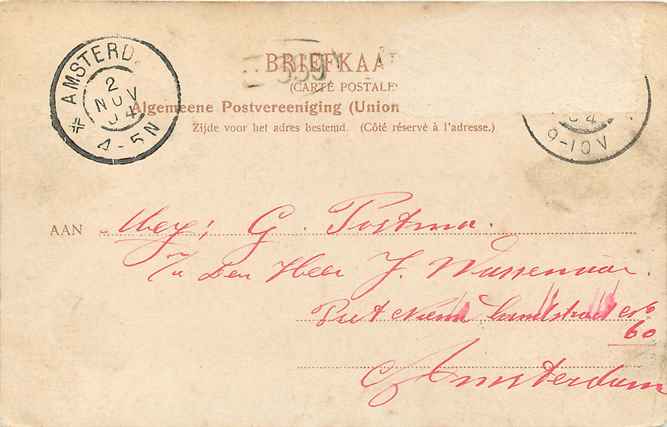 AMSTERD
2
NOV
04
4-5N
BRIEFKAA
(CARTE POSTALE
Algemeene Postvereeniging (Union
Zijde voor het adres bestemd. (Côté réservé à l'adresse.)
04
9-10V
AAN Mej; G. Postma.
den Heer J. Wassenaar.
Piet
60
Amsterdam